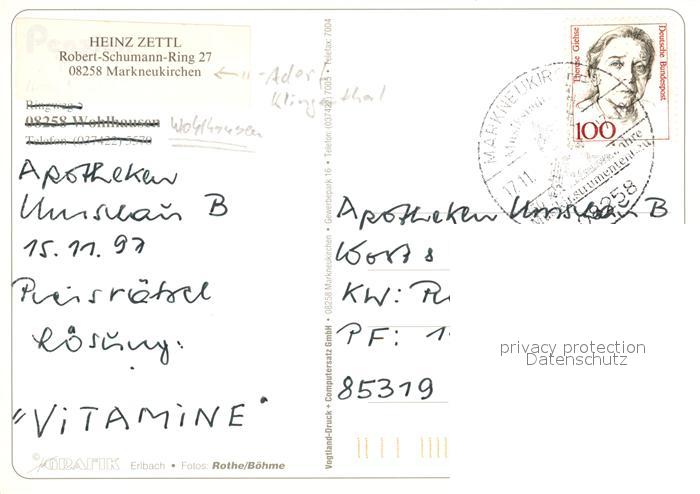 HEINZ ZETTL
Robert-Schumann-Ring 27
08258 Markneukirchen
← -Adorf
Klingenthal
Ringweg 2
08258 Wohlhausen
Wohlhausen
Telefon (037422) 5570
Apotheken
Umschau B
15.11.97
Preisrätsel
Lösung:
"VITAMINE"
©GRAFIK Erlbach • Fotos: Rothe/Böhme
Vogtland-Druck + Computersatz GmbH • 08258 Markneukirchen • Gewerbepark 16 • Telefon (037422) 7005 • Telefax: 7004
Therese Giehse
Deutsche Bundespost
100
MARKNEUKIRCHEN
17.11.
08258
Apotheken Umschau B
Wort &
KW:
PF: 1
85319
privacy protection
Datenschutz